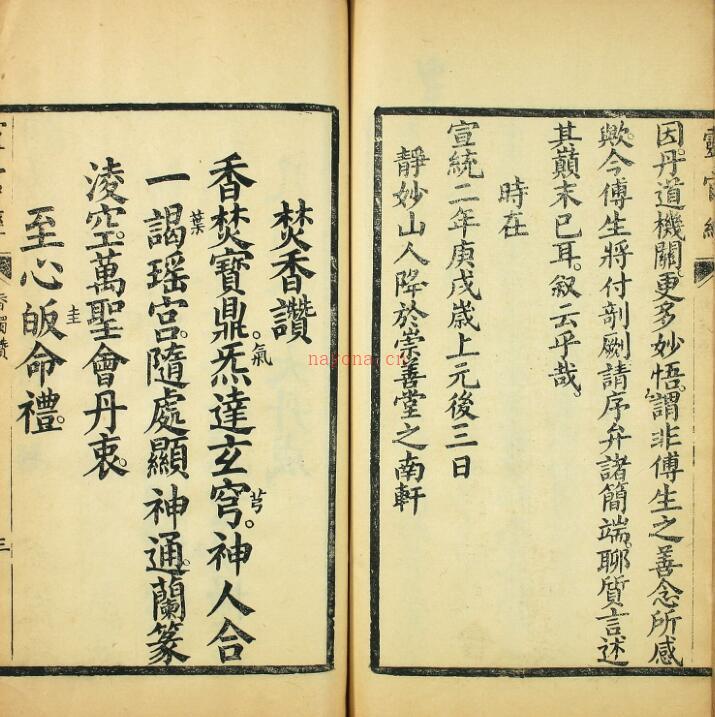 靈官經
因丹道機關。更多妙悟。謂非傅生之善念所感
歟。今傅生將付剞劂。請序弁諸簡端。聊質言述
其巔末已耳。叙云乎哉。
時在
宣統二年庚戌歲上元後三日
靜妙山人降於崇善堂之南軒
焚香讚
讚
香焚寶鼎。炁達玄穹。神人合
氣 芎
一謁瑶宮。隨處顯神通。蘭篆
葉
淩空。萬聖會丹衷。
至心皈命禮。
圭
三
nayona.cn